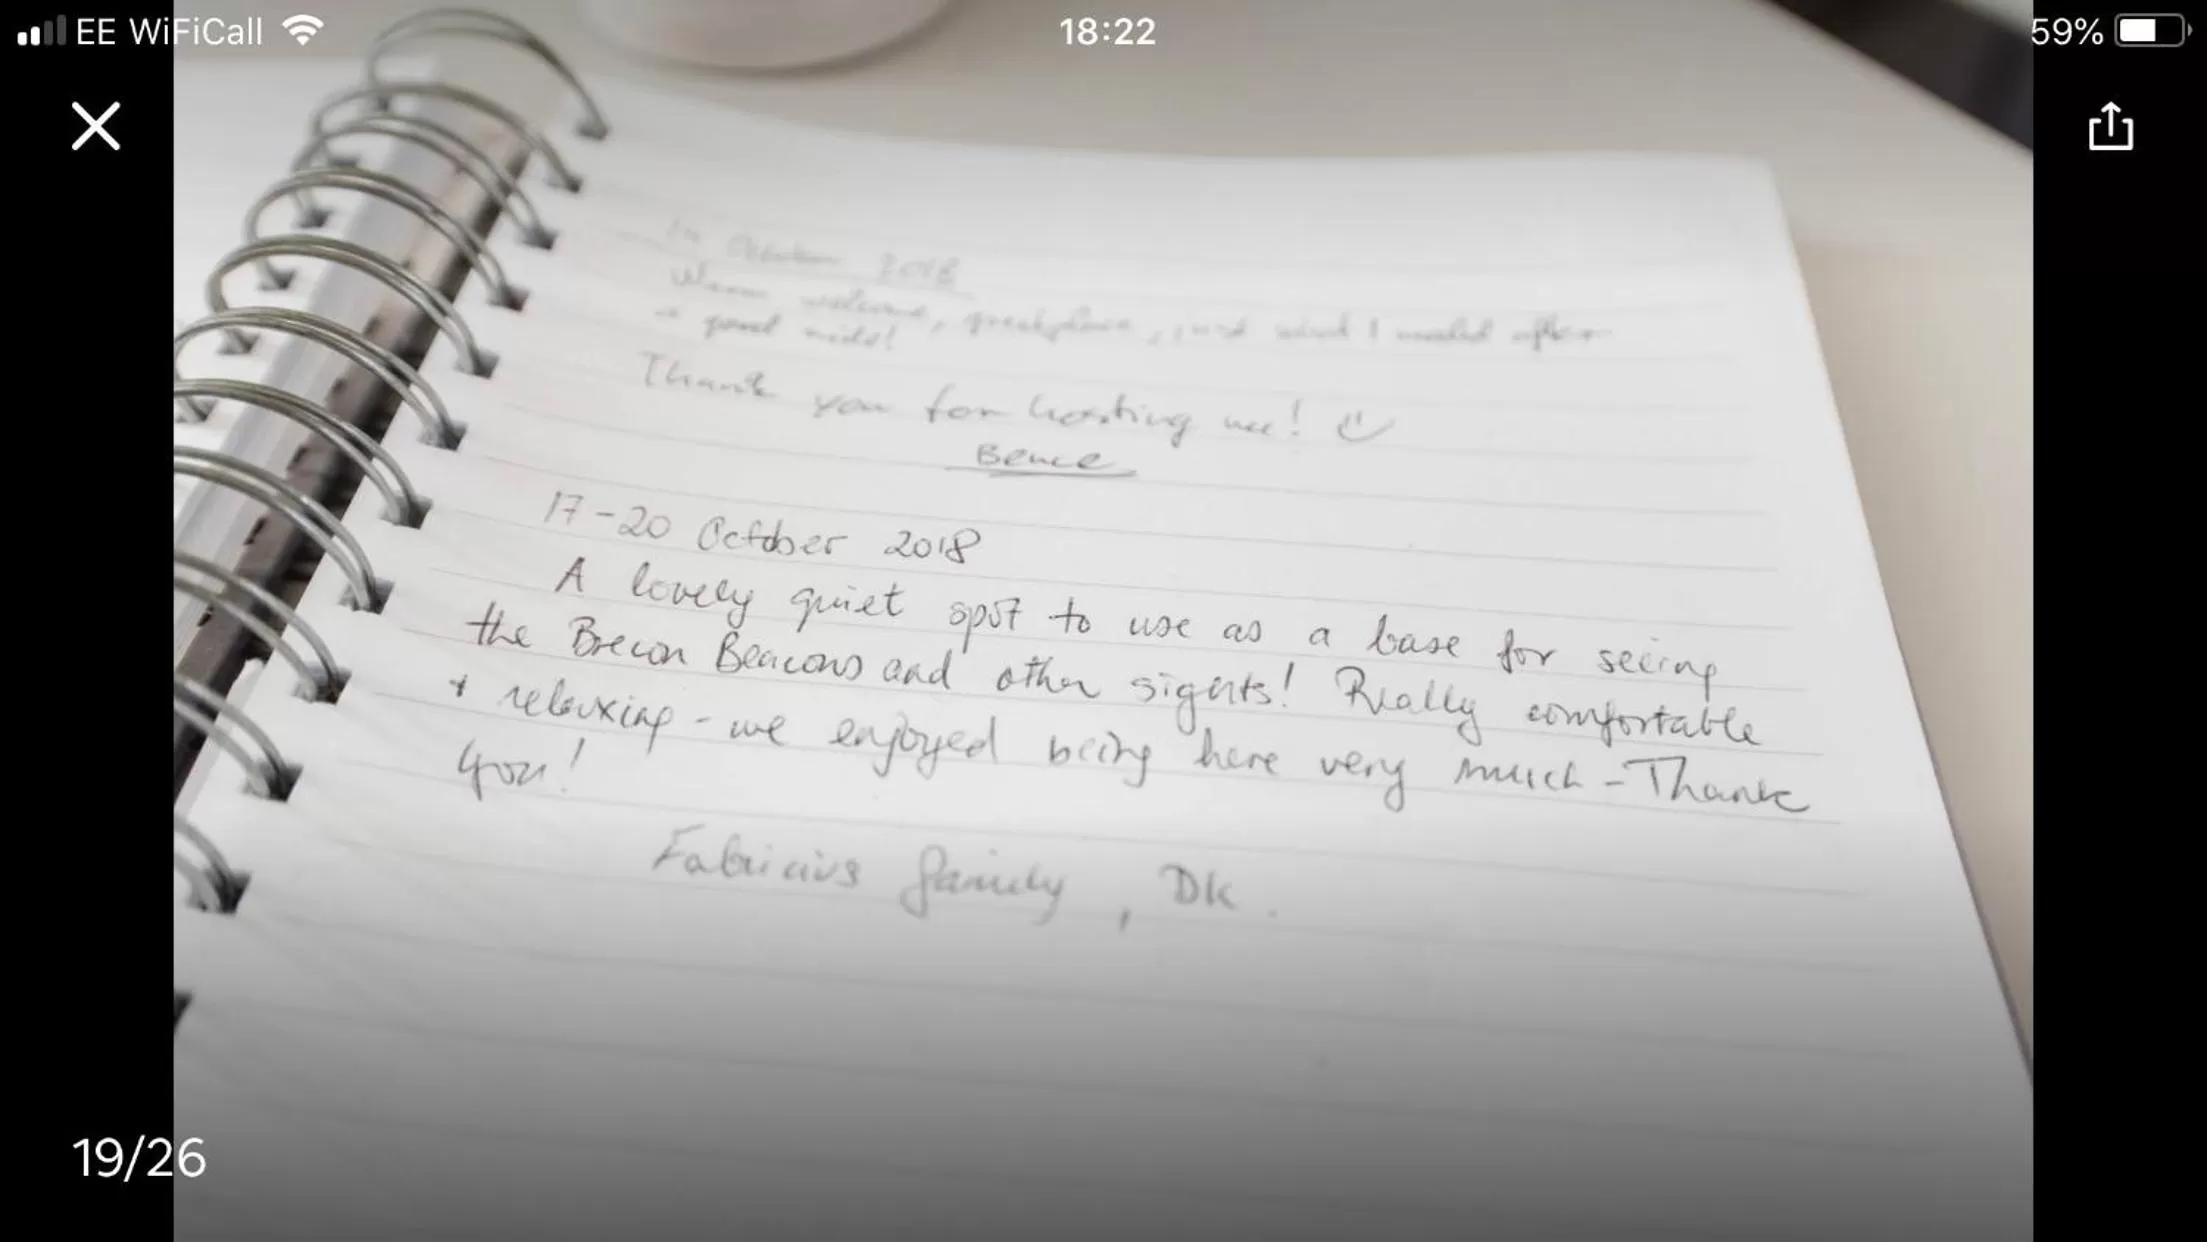 EE WiFiCall
18:22
59%
October 2018
Warm welcome, great place, just what I needed after
a good ride!
Thank you for hosting me!
Bence
17-20 October 2018
A lovely quiet spot to use as a base for seeing
the Brecon Beacons and other sights! Really comfortable
+ relaxing - we enjoyed being here very much - Thank
you!
Fabricius family, DK.
19/26